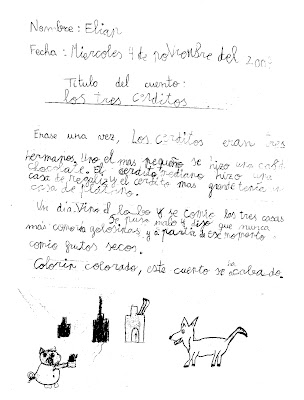 Nombre: Elian
Fecha: Miercoles 4 de novembre del 2009
Título del cuento:
los tres cerditos
Erase una vez, Los cerditos eran tres
hermanos. Uno el mas pequeño se hizo una casa
chocolate. El cerdito mediano hizo una
casa de regaliz y el cerdito mas grande tenia una
casa de platino.
Un dia vino el lobo y se comio los tres casas
Se puso malo y dijo que nunca
más comería golosinas, y a partir de ese momento
comio frutos secos.
Colorin colorado, este cuento se a acabado.